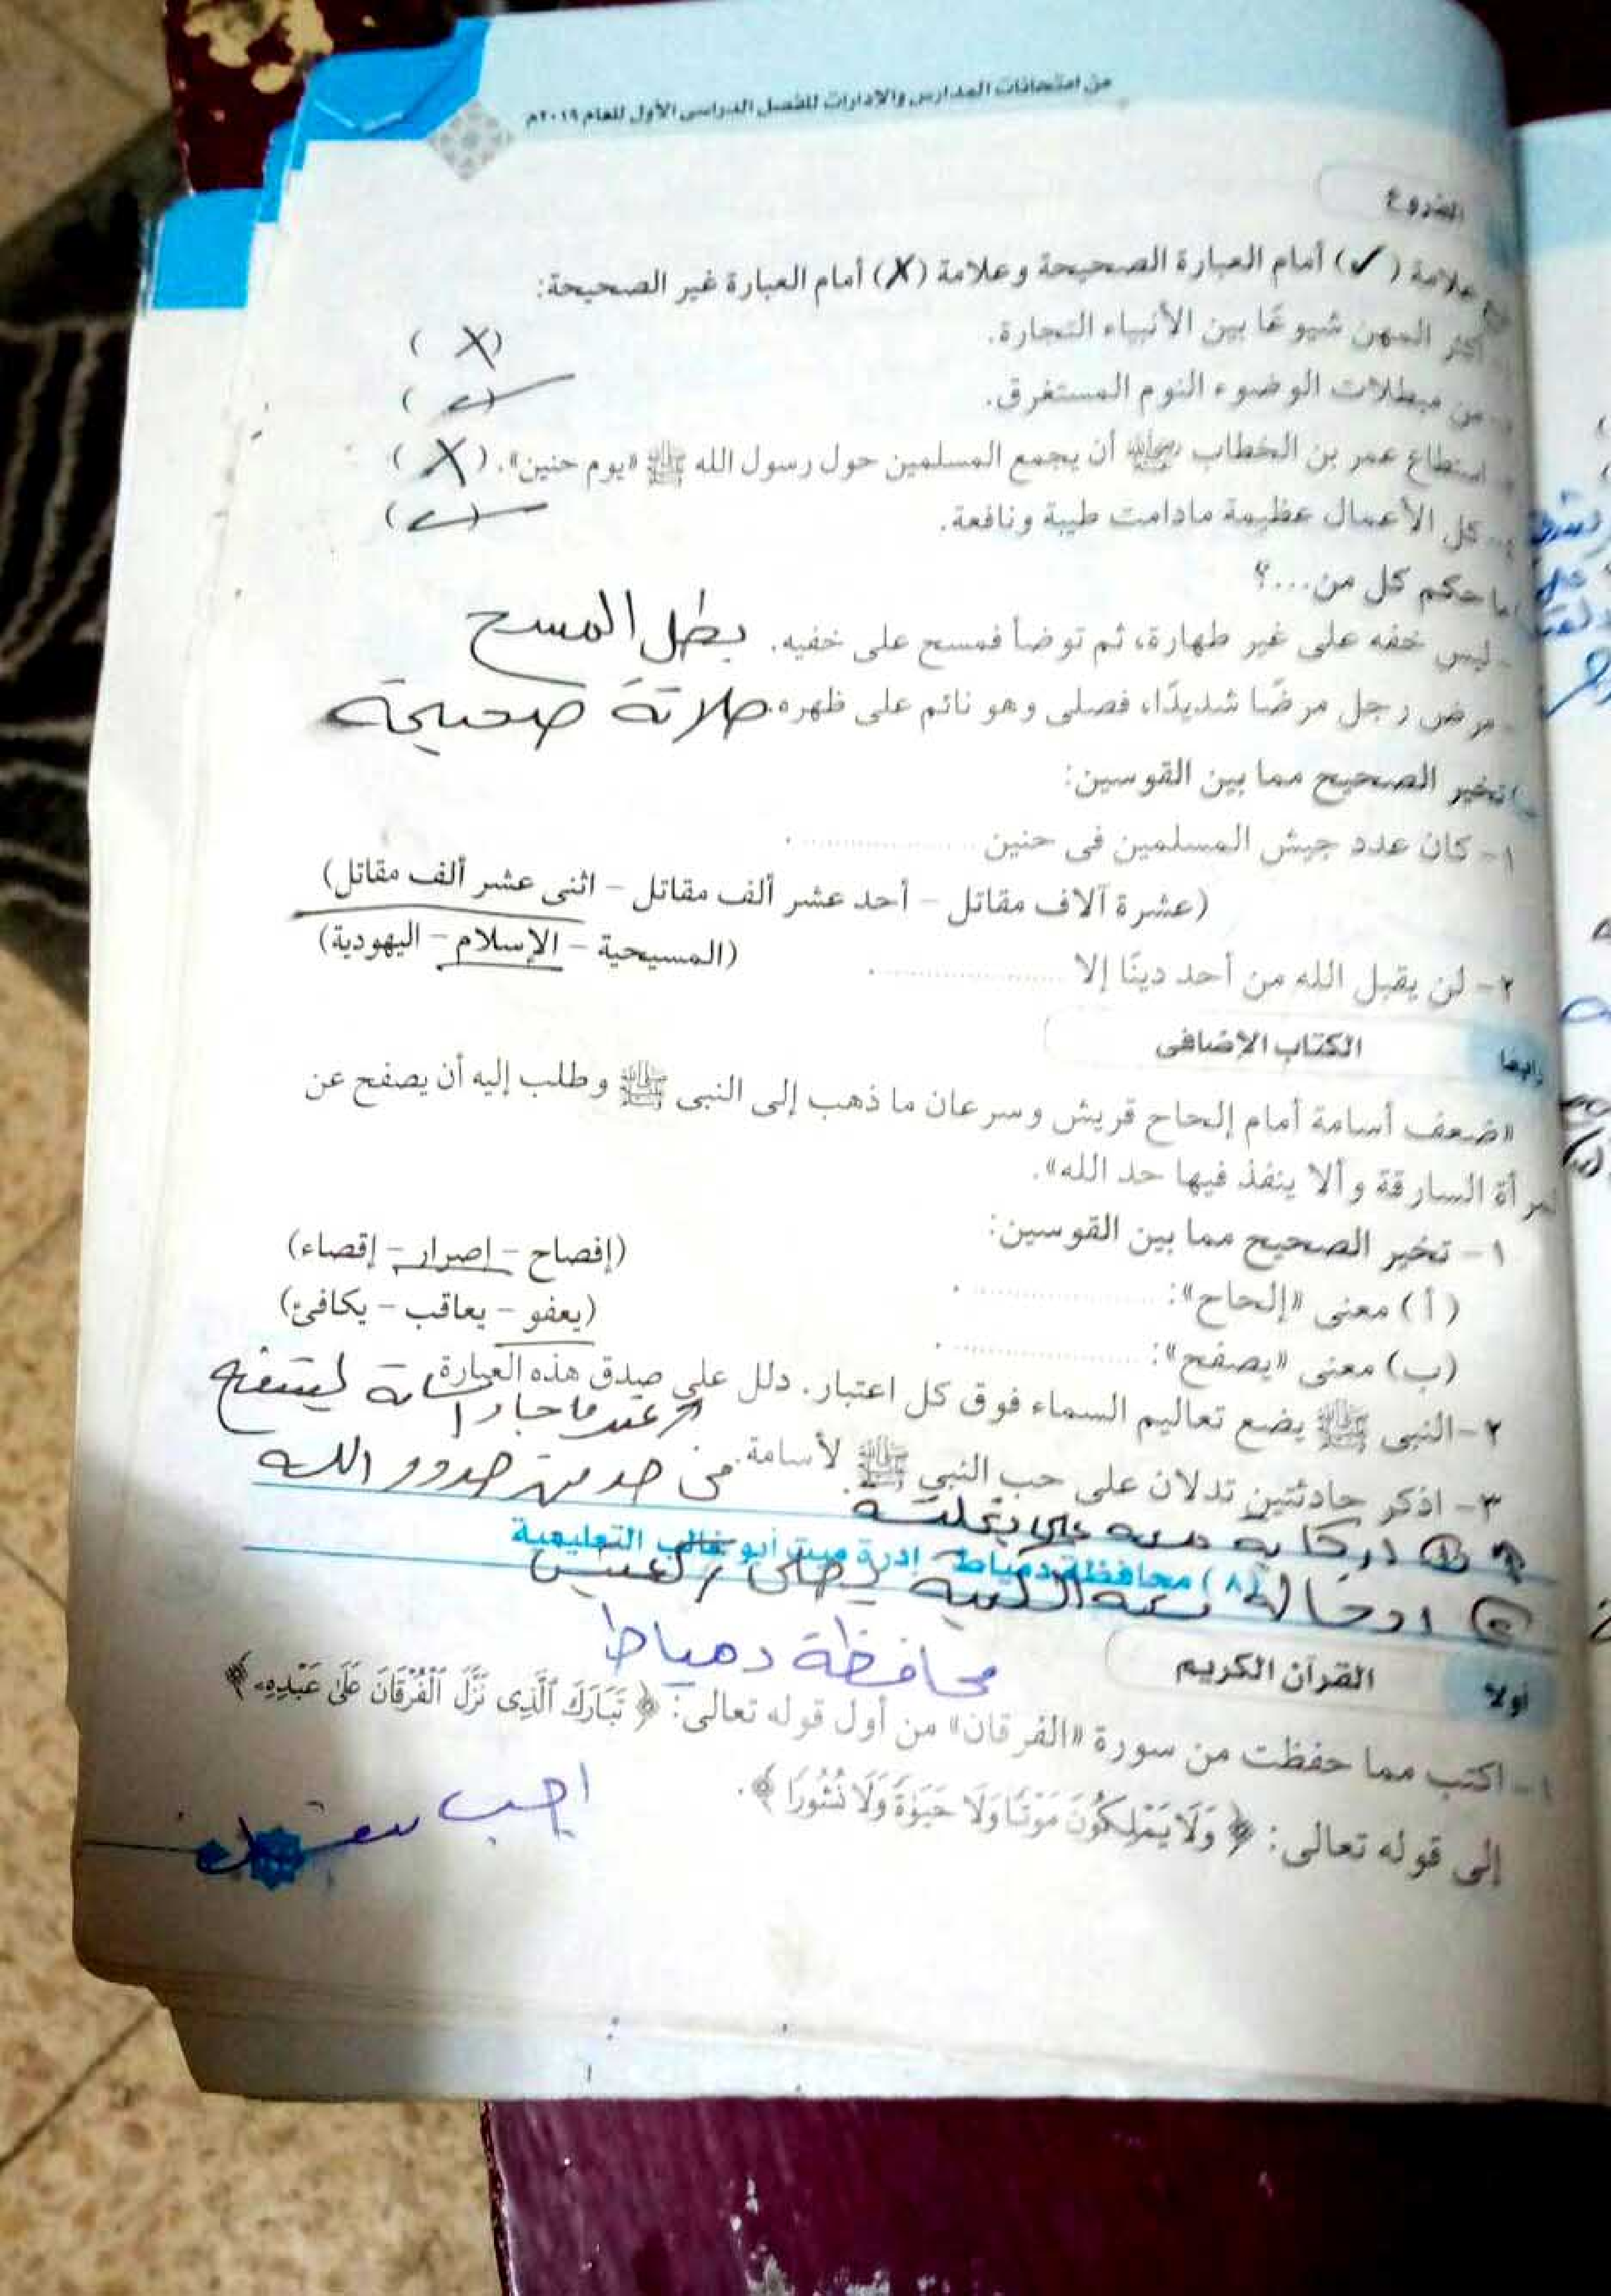 من امتحانات المدارس والإدارات للفصل الدراسى الأول للعام ٢٠١٩م
الفروع
علامة (✓) أمام العبارة الصحيحة وعلامة (X) أمام العبارة غير الصحيحة:
أكثر المهن شيوعًا بين الأنبياء التجارة. (X)
من مبطلات الوضوء النوم المستغرق. (✓)
استطاع عمر بن الخطاب رضي الله عنه أن يجمع المسلمين حول رسول الله ﷺ «يوم حنين». (X)
٤- كل الأعمال عظيمة مادامت طيبة ونافعة. (✓)
ما حكم كل من...؟
- لبس خفه على غير طهارة، ثم توضأ فمسح على خفيه. بطل المسح
- مرض رجل مرضًا شديدًا، فصلى وهو نائم على ظهره. صلاتة صحيحة
تخير الصحيح مما بين القوسين:
١- كان عدد جيش المسلمين فى حنين ...............
(عشرة آلاف مقاتل - أحد عشر ألف مقاتل - اثنى عشر ألف مقاتل)
٢- لن يقبل الله من أحد دينًا إلا ............... (المسيحية - الإسلام - اليهودية)
رابعًا الكتاب الإضافى
«ضعف أسامة أمام إلحاح قريش وسرعان ما ذهب إلى النبى ﷺ وطلب إليه أن يصفح عن
المرأة السارقة وألا ينفذ فيها حد الله».
١- تخير الصحيح مما بين القوسين:
(أ) معنى «إلحاح»: ............... (إفصاح - إصرار - إقصاء)
(ب) معنى «يصفح»: ............... (يعفو - يعاقب - يكافئ)
٢- النبى ﷺ يضع تعاليم السماء فوق كل اعتبار. دلل على صدق هذه العبارة.
عندما جاء اسامة ليشفع
فى حد من حدود الله
٣- اذكر حادثتين تدلان على حب النبى ﷺ لأسامة.
① اركابة معه على بغلته
(٨) محافظة دمياط - إدرة ميت أبو غالب التعليمية
② ادخالة معه الكعبة ليصلى ركعتين
محافظة دمياط
أولًا القرآن الكريم
١- اكتب مما حفظت من سورة «الفرقان» من أول قوله تعالى: ﴿تَبَارَكَ ٱلَّذِى نَزَّلَ ٱلْفُرْقَانَ عَلَىٰ عَبْدِهِۦ﴾
إلى قوله تعالى: ﴿وَلَا يَمْلِكُونَ مَوْتًا وَلَا حَيَوٰةً وَلَا نُشُورًا﴾.
اجب بنفسك